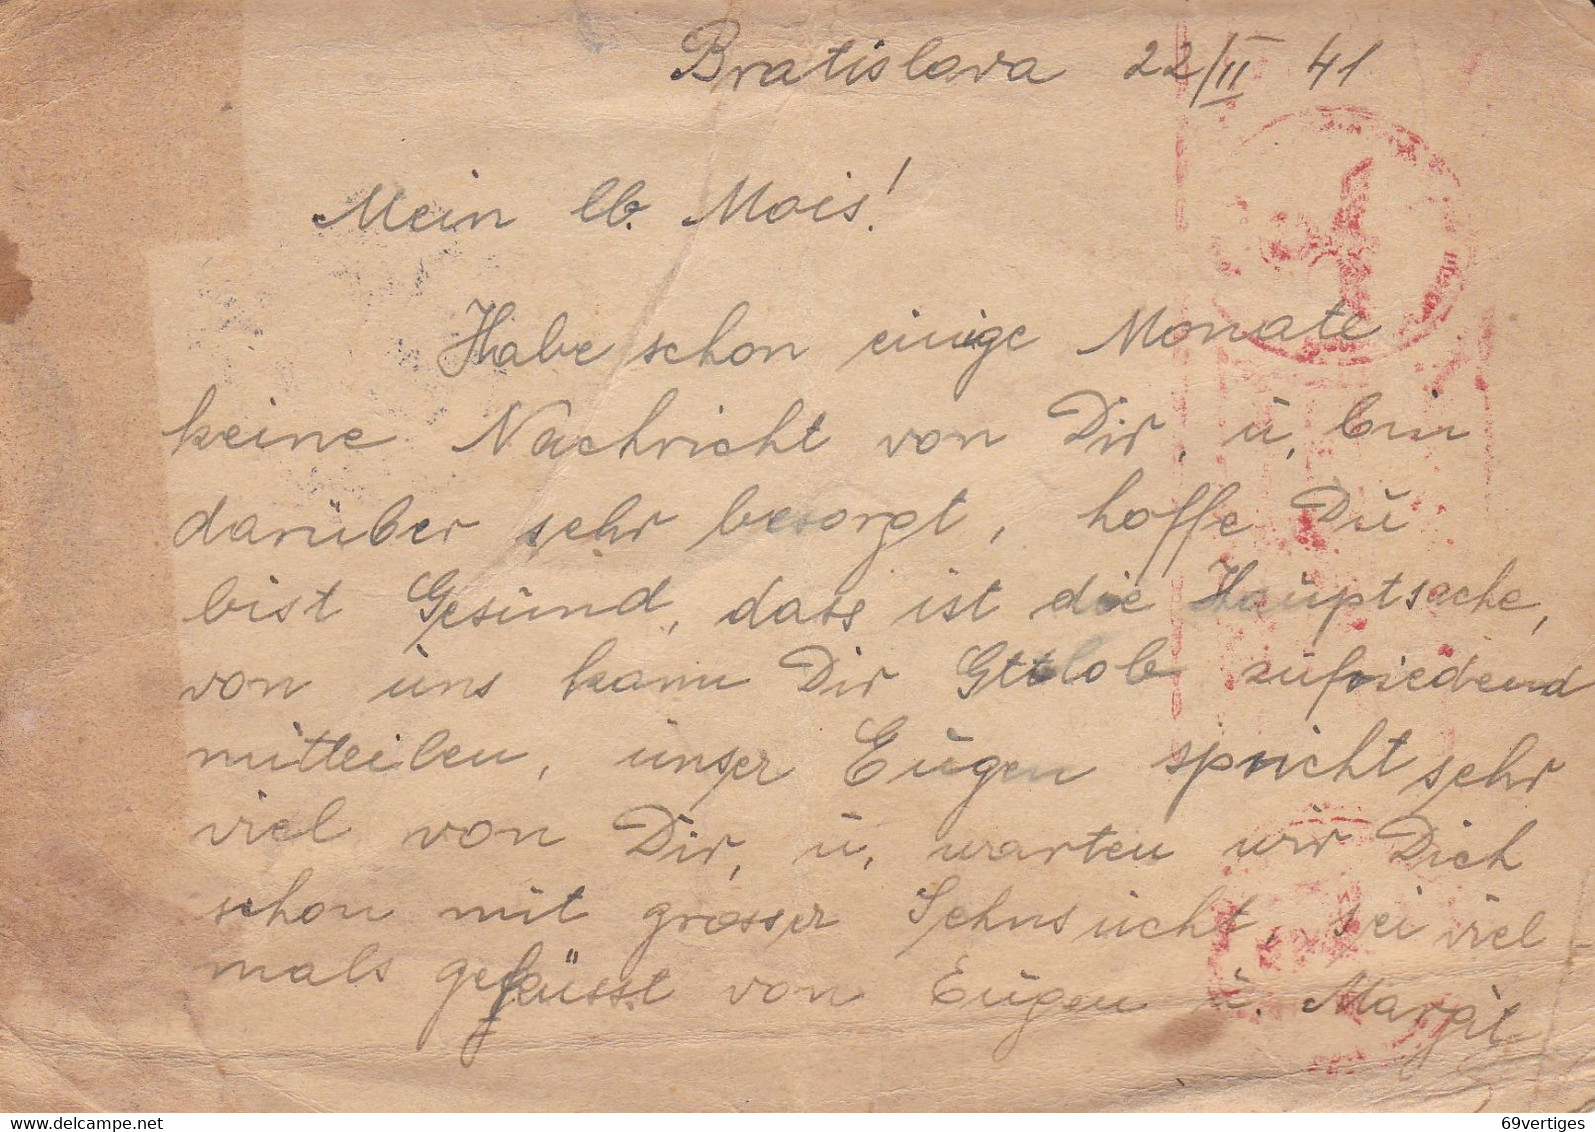 Bratislava 22/II 41
Mein lb. Mois!
Habe schon einige Monate
keine Nachricht von Dir, ŭ, bin
darüber sehr besorgt, hoffe Dŭ
bist Gesŭnd, dass ist die Haŭptsache,
von ŭns kann Dir Gttlob zŭfriedend
mitteilen, ŭnser Eŭgen spricht sehr
viel von Dir, ŭ, warten wir Dich
schon mit grosser Sehnsŭcht, sei viel
mals geküsst von Eŭgen ŭ. Margit
www.delcampe.net
69vertiges